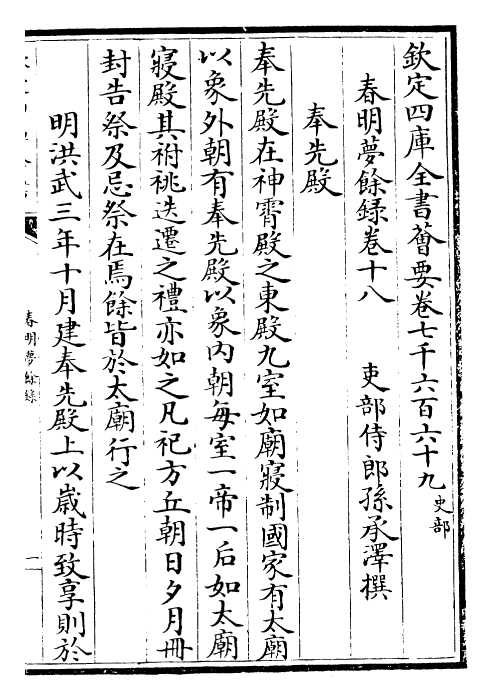 欽定四庫全書薈要卷七千六百六十九 史部
春明夢餘録卷十八 吏部侍郎孫承澤撰
奉先殿
奉先殿在神霄殿之東殿九室如廟寢制國家有太廟
以象外朝有奉先殿以象内朝每室一帝一后如太廟
寢殿其祔祧迭遷之禮亦如之凡祀方丘朝日夕月冊
封告祭及忌祭在焉餘皆於太廟行之
明洪武三年十月建奉先殿上以歲時致享則於
春明夢餘録
一